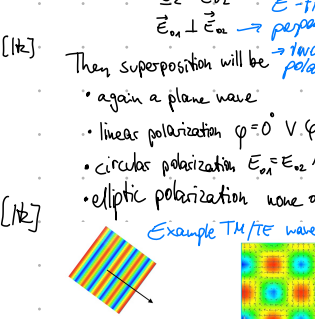 E⃗₀₁ ⊥ E⃗₀₂ →
[Hz]
Then superposition will be
• again a plane wave
• linear polarization φ=0° ∨ φ
• circular polarization E₀₁=E₀₂ ∧
[Hz]
• elliptic polarization none
Example TM/TE wave